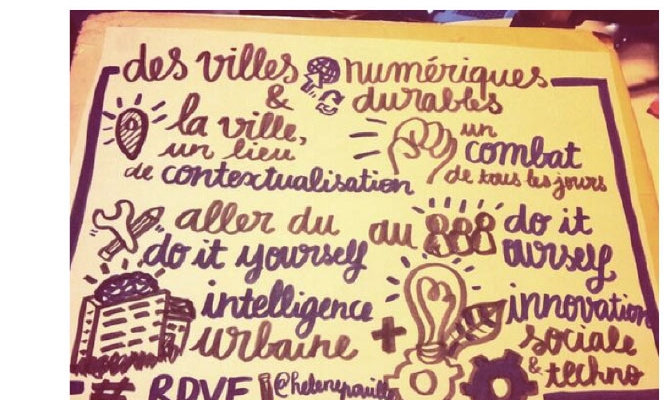 des villes numériques
& durables
la ville,
un lieu
de contextualisation
un
combat
de tous les jours
aller du
do it yourself
au do it
ourself
intelligence
urbaine
+
innovation
sociale
& techno
# RDVF @helenepouille